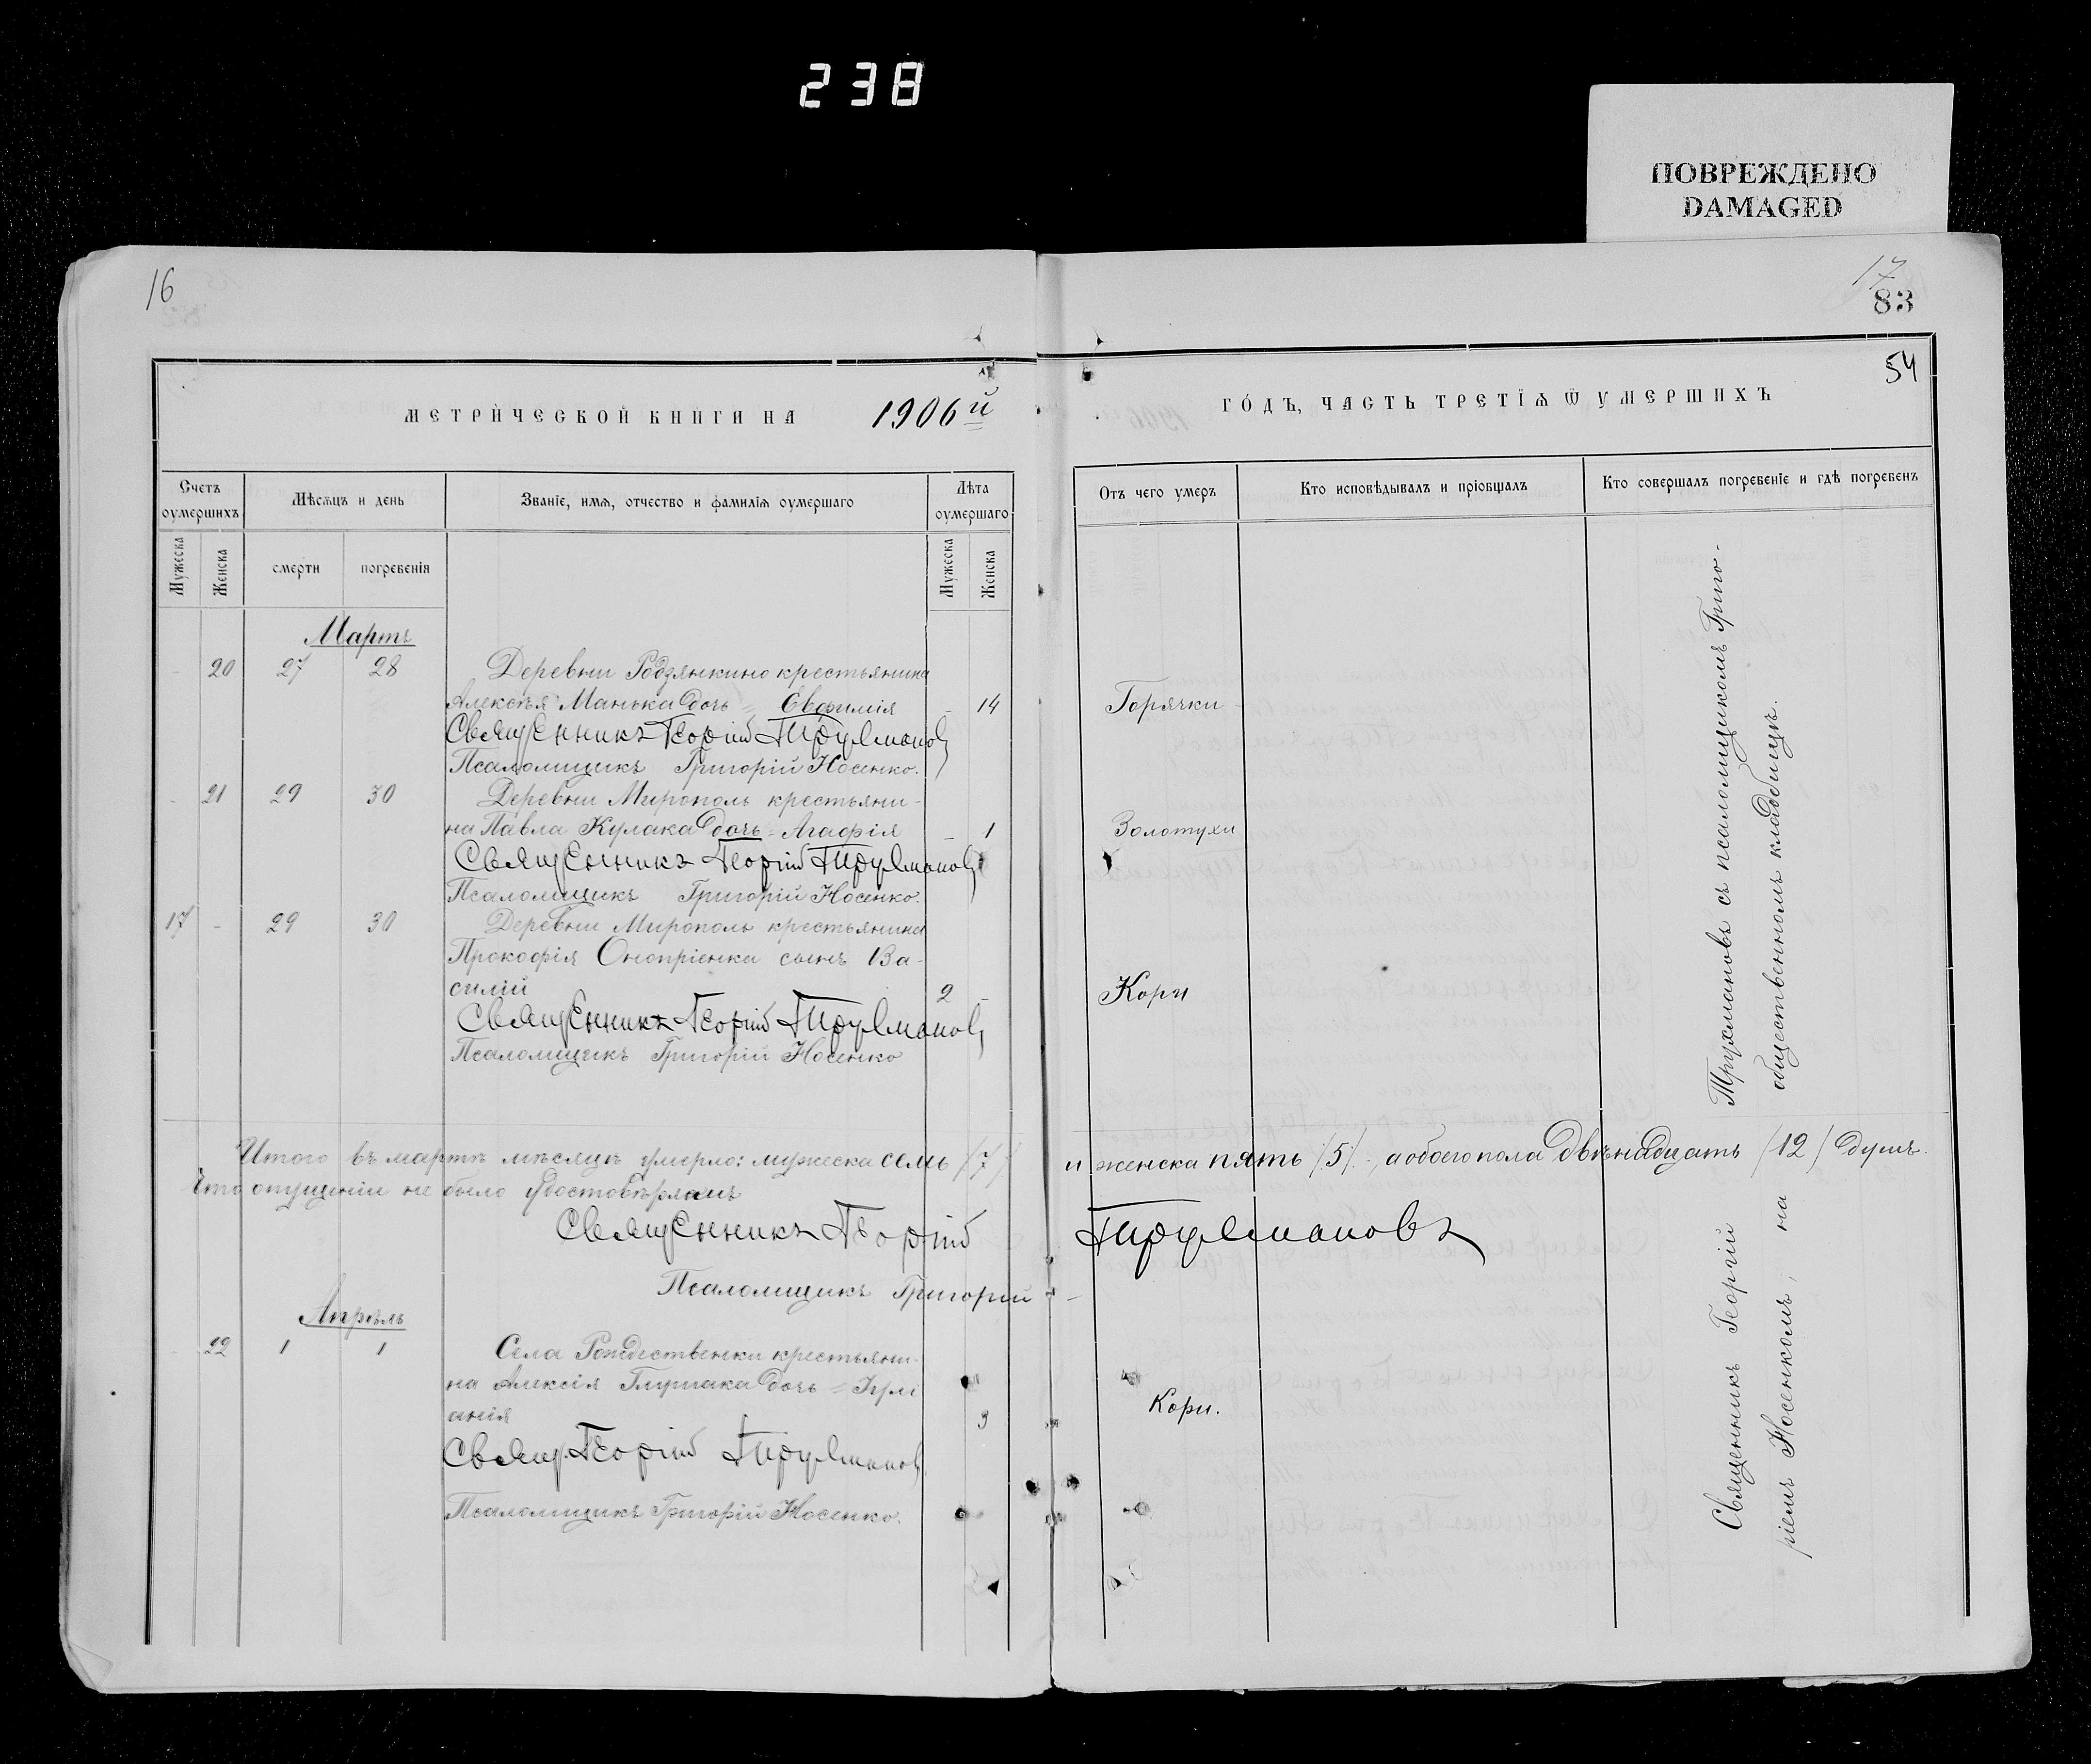 238
ПОВРЕЖДЕНО
DAMAGED
16
17
83
54
МЕТРИЧЕСКОЙ КНИГИ НА 1906й
ГОДЪ, ЧАСТЬ ТРЕТІЯ Ѿ УМЕРШИХЪ
Счетъ оумершихъ
Мѣсяцъ и день
Званіе, имя, отчество и фамилія оумершаго
Лѣта оумершаго
Отъ чего умеръ
Кто исповѣдывалъ и пріобщалъ
Кто совершалъ погребеніе и гдѣ погребенъ
Мужеска
Женска
смерти
погребенія
Мужеска
Женска
Мартъ
- 20 27 28 Деревни Родзянкино крестьянина
Алексѣя Манька дочь = Евфимія - 14 Горячки
Священникъ Георгій Трухмановъ
Псаломщикъ Григорій Носенко.
- 21 29 30 Деревни Мирополь крестьяни-
на Павла Кулака дочь = Агафія - 1 Золотухи
Священникъ Георгій Трухмановъ
Псаломщикъ Григорій Носенко.
17 - 29 30 Деревни Мирополь крестьянина
Прокофія Оноприенка сынъ Ва-
силій 2 - Кори
Священникъ Георгій Трухмановъ
Псаломщикъ Григорій Носенко
Итого въ мартѣ мѣсяцѣ умерло: мужеска семь /7/ и женска пять /5/ -, а обоего пола двѣнадцать /12/ душъ.
Что опущеніи не было удостовѣряемъ
Священникъ Георгій Трухмановъ
Псаломщикъ Григорій
Апрѣль
- 22 1 1 Села Рождественки крестьяни-
на Алексія дочь = Іулі
анія 3 Кори.
Свящ. Георгій Трухмановъ
Псаломщикъ Григорій Носенко.
Священникъ Георгій Трухмановъ съ псаломщикомъ Григо-
ріемъ Носенкомъ, на общественномъ кладбищѣ.